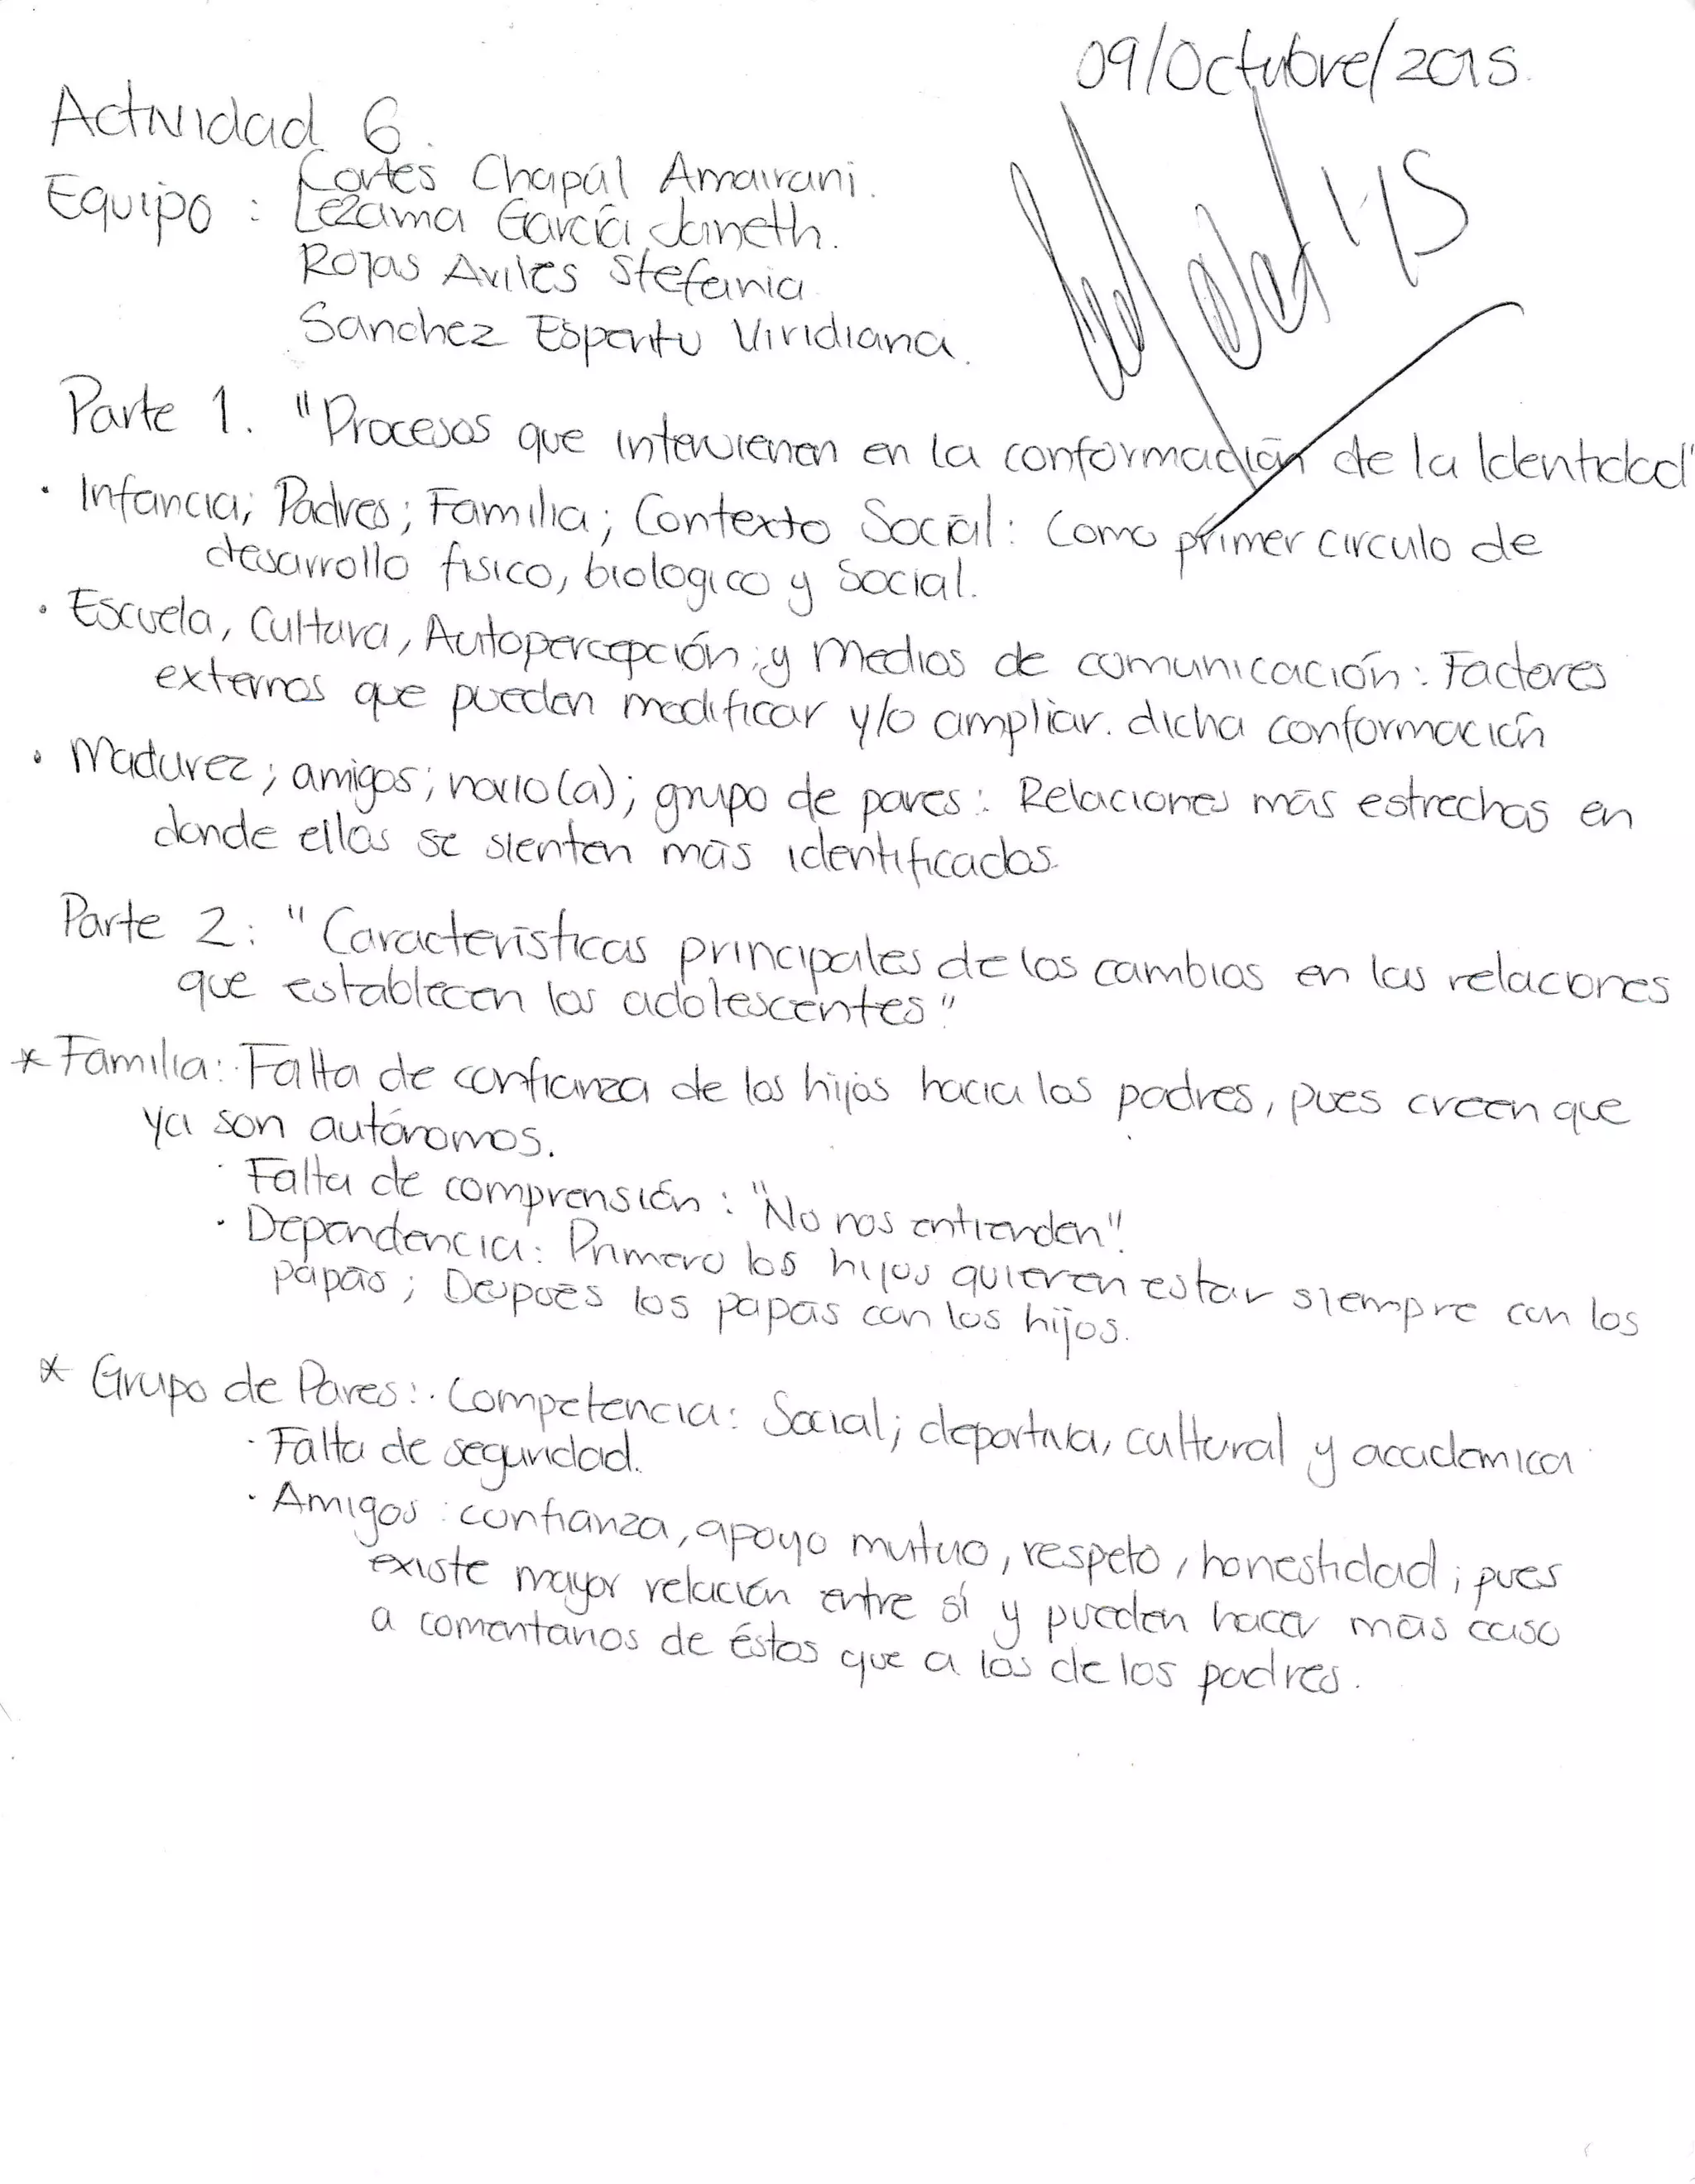 09/Octubre/2015.
Actividad 6.
Equipo : Cortes Chapúl Amairani.
Lezama García Janeth.
Rojas Aviles Stefania
Sanchez Espiritu Viridiana.
Parte 1. "Procesos que intervienen en la conformación de la Identidad"
· Infancia; Padres; Familia; Contexto Social: Como primer circulo de
desarrollo fisico, biologico y Social.
· Escuela, Cultura, Autopercepción; y medios de comunicación: Factores
externos que pueden modificar y/o ampliar. dicha conformación
· Madurez; amigos; novio(a); grupo de pares: Relaciones más estrechas en
donde ellos se sienten más identificados.
Parte 2: "Características principales de los cambios en las relaciones
que establecen los adolescentes"
* Familia: · Falta de confianza de los hijos hacia los padres, pues creen que
ya son autónomos.
· Falta de comprensión : "No nos entienden"
· Dependencia: Primero los hijos quieren estar siempre con los
papás; Después los papás con los hijos.
* Grupo de Pares: · Competencia: Social; deportiva, cultural y academica
· Falta de seguridad.
· Amigos : confianza, apoyo mutuo, respeto, honestidad; pues
existe mayor relación entre sí y pueden hacer más caso
a comentarios de éstos que a los de los padres.